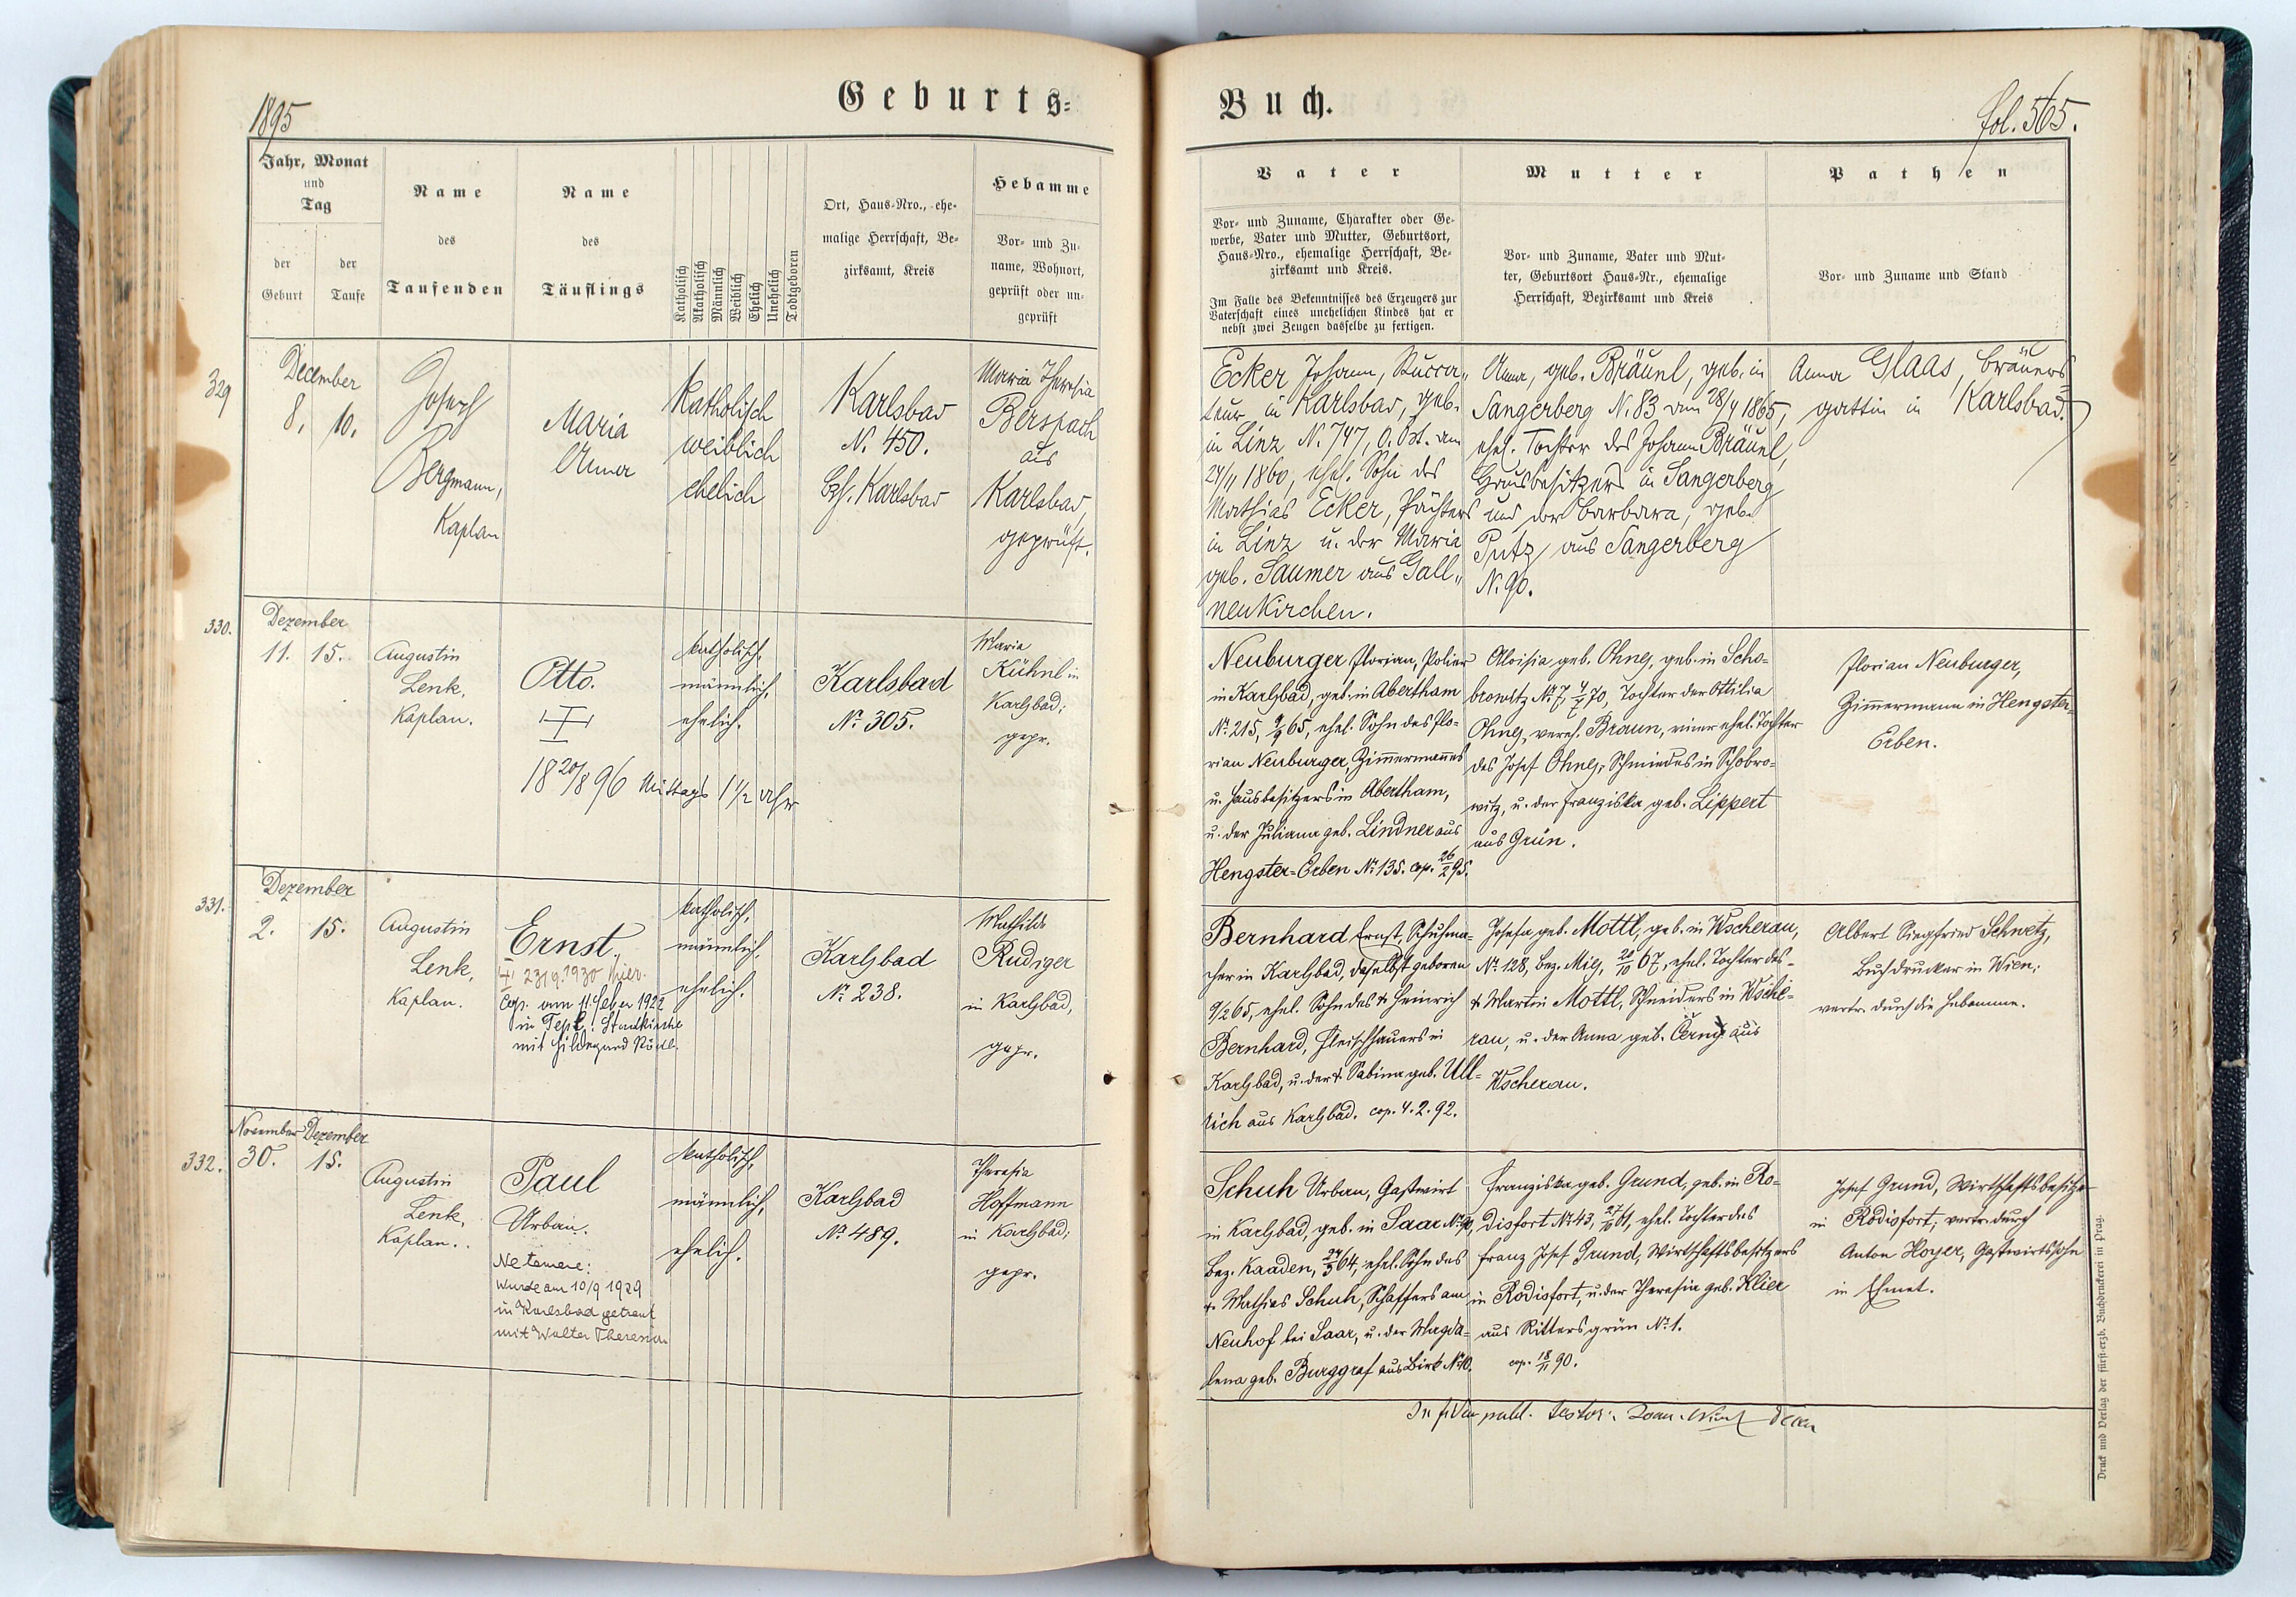 1895
Geburts-
Buch.
fol. 565.
Jahr, Monat
und
Tag
der
Geburt
der
Taufe
Name
des
Taufenden
Name
des
Täuflings
Katholisch
Akatholisch
Männlich
Weiblich
Ehelich
Unehelich
Todtgeboren
Ort, Haus-Nro., ehe-
malige Herrschaft, Be-
zirksamt, Kreis
Hebamme
Vor- und Zu-
name, Wohnort,
geprüft oder un-
geprüft
Vater
Vor- und Zuname, Charakter oder Ge-
werbe, Vater und Mutter, Geburtsort,
Haus-Nro., ehemalige Herrschaft, Be-
zirksamt und Kreis.
Im Falle des Bekenntnisses des Erzeugers zur
Vaterschaft eines unehelichen Kindes hat er
nebst zwei Zeugen dasselbe zu fertigen.
Mutter
Vor- und Zuname, Vater und Mut-
ter, Geburtsort Haus-Nr., ehemalige
Herrschaft, Bezirksamt und Kreis
Pathen
Vor- und Zuname und Stand
329
December
8. 10.
Joseph
Bergmann,
Kaplan
Maria
Anna
katholisch
weiblich
ehelich
Karlsbad
N. 450.
Bzh. Karlsbad
Maria Theresia
Berspach
aus
Karlsbad,
geprüft.
Ecker Johann, Stucca„
teur in Karlsbad, geb.
in Linz N. 747, O. Öst. am
24/11 1860, ehel. Sohn des
Mathias Ecker, Pächters
in Linz u. der Maria
geb. Saumer aus Gall„
neukirchen.
Anna, geb. Bräunl, geb. in
Sangerberg N. 83 am 28/4 1865,
ehel. Tochter des Johann Bräunl,
Hausbesitzers in Sangerberg
und der Barbara, geb.
Putz aus Sangerberg
N. 90.
Anna Glaas, Bräuers
gattin in Karlsbad.
330.
Dezember
11. 15.
Augustin
Lenk,
Kaplan.
Otto.
18 20/8 96 Mittags 1 1/2 Uhr
katholisch,
männlich,
ehelich.
Karlsbad
No 305.
Maria
Kühnl in
Karlsbad;
gepr.
Neuburger Florian, Polier
in Karlsbad, geb. in Abertham
No 215, 9/9 65, ehel. Sohn des Flo-
rian Neuburger, Zimmermannes
u. Hausbesitzers in Abertham,
u. der Juliana geb. Lindner aus
Hengster-Erben No 135. cop. 26/2 95.
Aloisia geb. Ohng, geb. in Scho-
browitz No 7, 70, Tochter der Ottilia
Ohng, vereh. Braun, einer ehel. Tochter
des Josef Ohng, Schmiedes in Schobro-
witz, u. der Franziska geb. Lippert
aus Grün.
Florian Neuburger,
Zimmermann in Hengster-
Erben.
331.
Dezember
2. 15.
Augustin
Lenk,
Kaplan.
Ernst.
23/9. 1930 hier.
Cop. am 11. Feber 1922
in Tepl. Stadtkirche
mit Hildegard
katholisch,
männlich,
ehelich.
Karlsbad
No 238.
Mathilde
Rudiger
in Karlsbad,
gepr.
Bernhard Ernst, Schuhma-
cher in Karlsbad, daselbst geboren
9/2 65, ehel. Sohn des † Heinrich
Bernhard, Fleischhauers in
Karlsbad, u. der † Sabina geb. Ull-
rich aus Karlsbad. cop. 4. 2. 92.
Josefa geb. Mottl, geb. in Wscherau,
No 128, Bez. Mies, 20/10 67, ehel. Tochter des
† Martin Mottl, Schneiders in Wsche-
rau, u. der Anna geb. Černý aus
Wscherau.
Albert Siegfried Schwetz,
Buchdrucker in Wien;
vertr. durch die Hebamme.
332.
November Dezember
30. 15.
Augustin
Lenk,
Kaplan.
Paul
Urban.
Ne temere:
wurde am 10/9 1929
in Karlsbad getraut
mit Walter Theresia
katholisch,
männlich,
ehelich.
Karlsbad
No 489.
Theresia
Hoffmann
in Karlsbad;
gepr.
Schuh Urban, Gastwirt
in Karlsbad, geb. in Saar
Bez. Kaaden, 64, ehel. Sohn des
† Mathias Schuh, Schaffers am
Neuhof bei Saar, u. der Magda-
lena geb. Burggraf aus Birk No 10.
Franziska geb. Grund, geb. in Ro-
disfort No 43, 61, ehel. Tochter des
Franz Josef Grund, Wirtschaftsbesitzers
in Rodisfort, u. der Theresia geb. Klier
aus Rittersgrün No 1.
cop. 18/11 90.
Josef Grund, Wirtschaftsbesitzer
in Rodisfort; vertr. durch
Anton Hoyer, Gastwirtssohn
in Ehmet.
In fidem publ. testor:
Druck und Verlag der fürst-erzb. Buchdruckerei in Prag.